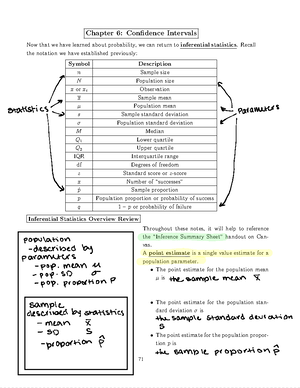 Chapter 6: Confidence Intervals
Now that we have learned about probability, we can return to inferential statistics. Recall
the notation we have established previously:
Symbol Description
n Sample size
N Population size
x or xᵢ Observation
x̄ Sample mean
μ Population mean
s Sample standard deviation
σ Population standard deviation
M Median
Q₁ Lower quartile
Q₃ Upper quartile
IQR Interquartile range
df Degrees of freedom
z Standard score or z-score
x Number of "successes"
p̂ Sample proportion
p Population proportion or probability of success
q 1 − p or probability of failure
Statistics
Parameters
Inferential Statistics Overview Review
population
-described by
parameters
-pop. mean μ
-pop. SD σ
-pop. proportion p
Sample
described by statistics
- mean x̄
- SD S
-proportion p̂
Throughout these notes, it will help to reference
the "Inference Summary Sheet" handout on Can-
vas.
A point estimate is a single value estimate for a
population parameter.
• The point estimate for the population mean
μ is the sample mean x̄
• The point estimate for the population stan-
dard deviation σ is
the sample standard deviation
s
• The point estimate for the population propor-
tion p is
the sample proportion p̂
71